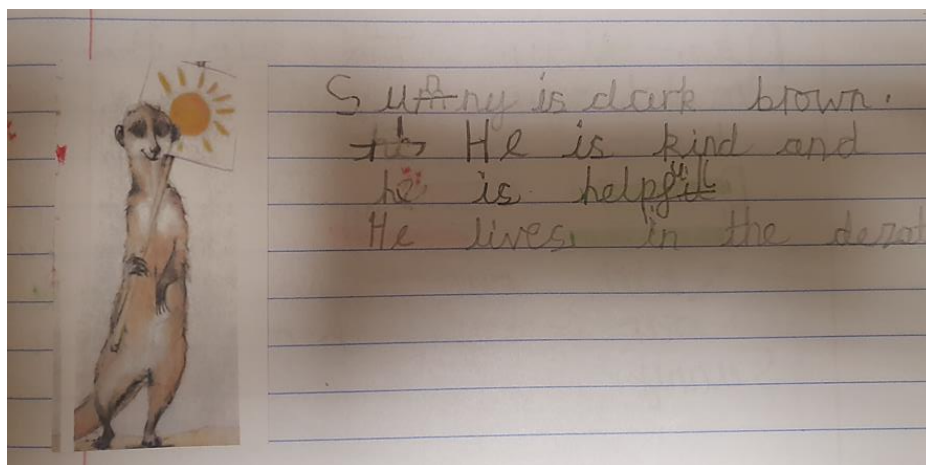 Sunny is dark brown.
He is kind and
he is helpful
He lives in the